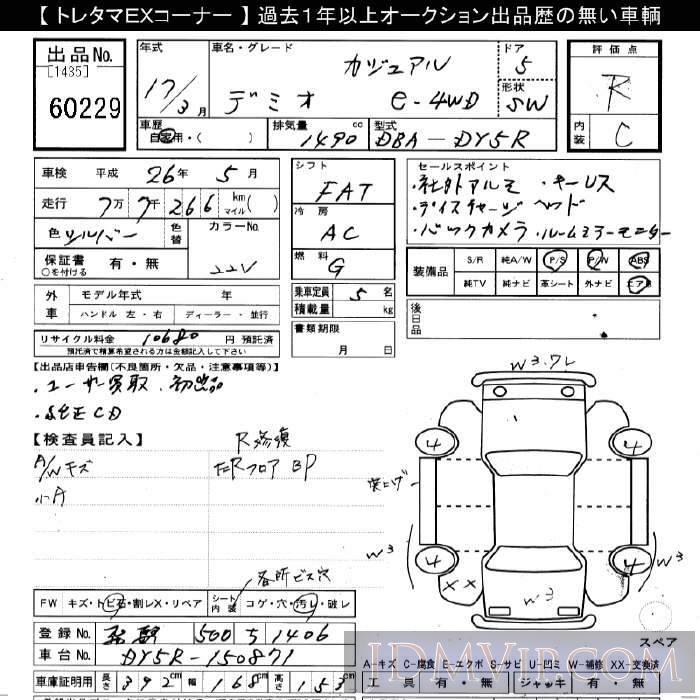 【 トレタマEXコーナー 】 過去１年以上オークション出品歴の無い車輌
出品No.
[1435]
60229
年式
17/3月
車名・グレード
カジュアル
デミオ e-4WD
ドア
5
形状
SW
評価点
R
内装
C
車歴
自家用・( )
排気量
1490 cc
型式
DBA-DY5R
車検 平成 26年 5月
走行 7万7千266 km マイル( )
色 シルバー 色替 カラーNo.
22V
保証書 有・無
○を付ける
外車 モデル年式 年
ハンドル 左・右 ディーラー・並行
リサイクル料金 10680 円 預託済
預託済で精算希望される方は金額記入して下さい
シフト
FAT
冷房
AC
燃料
G
乗車定員 5 名
積載量 kg
書類期限
月 日
セールスポイント
・社外アルミ ・キーレス
・ディスチャージヘッド
・バックカメラ・ルームミラーモニター
装備品 S/R 純A/W P/S P/W ABS
純TV 純ナビ 革シート 外ナビ エアB
後日品
【出品店申告欄(不良箇所・欠品・注意事項等)】
・ユーザー買取 初出品
・純正CD
【検査員記入】
R修復
A/Wキズ 左Rフロア BP
小A
各所ビス穴
FW キズ・トビ石・割レX・リペア シート内装 コゲ・穴・汚レ・破レ
登録No. 500 ち 1406
車台No. DY5R-150871
車庫証明用 長さ 392cm 幅 168cm 高さ 153cm
W3.ワレ
4 4
4 4
W3 W3
XX W3
スペア
A-キズ C-腐食 E-エクボ S-サビ U-凹ミ W-補修 XX-交換済
工具 有・無 ジャッキ 有・無
JDMVIP.COM